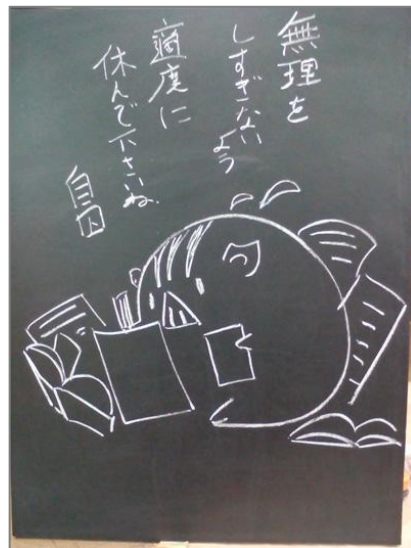 無理を
しすぎないよう
適度に
休んで下さいね